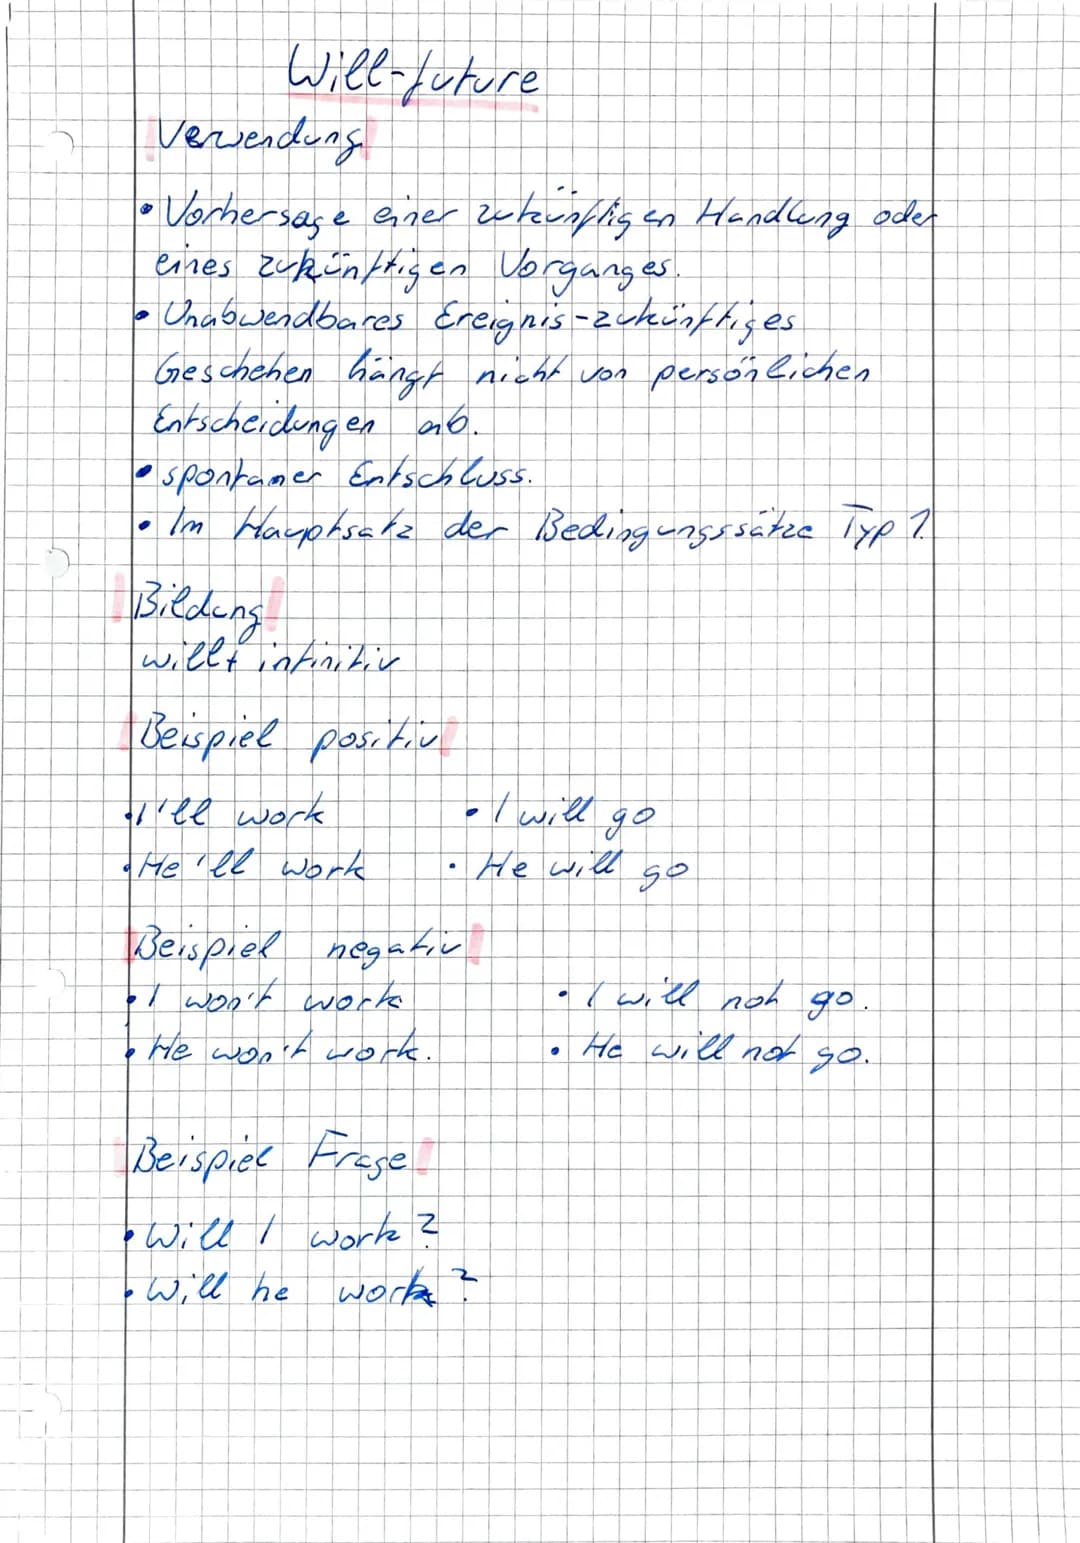 Will-future
Verwendung
• Vorhersage einer zukünftigen Handlung oder
eines zukünftigen Vorganges.
• Unabwendbares Ereignis-zukünftiges
Geschehen hängt nicht von persönlichen
Entscheidungen ab.
• spontaner Entschluss.
• Im Hauptsatz der Bedingungssätze Typ 1.
Bildung
will+ infinitiv
Beispiel positiv
• I'll work • I will go
• He'll work • He will go
Beispiel negativ
• I won't work • I will not go.
• He won't work. • He will not go.
Beispiel Frage
• Will I work?
• Will he work?